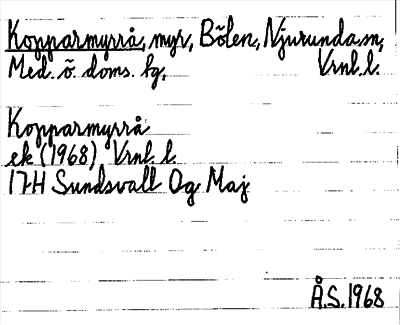 Kopparmyrrå, myr, Bölen, Njurunda sn,
Med. ö. doms. hg, Vrnl. l.
Kopparmyrrå
ek (1968) Vrnl. l.
17H Sundsvall Og Maj
Å.S. 1968